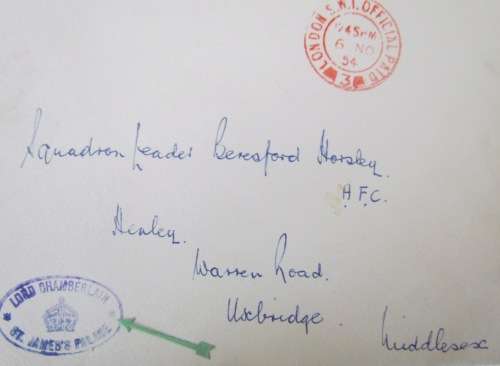 LONDON S.W.1. OFFICIAL PAID
45 PM
6 NO
54
3
Squadron Leader Beresford Horsley.
A.F.C.
Henley.
Warren Road.
Uxbridge.
Middlesex
LORD CHAMBERLAIN
ST. JAMES'S PALACE